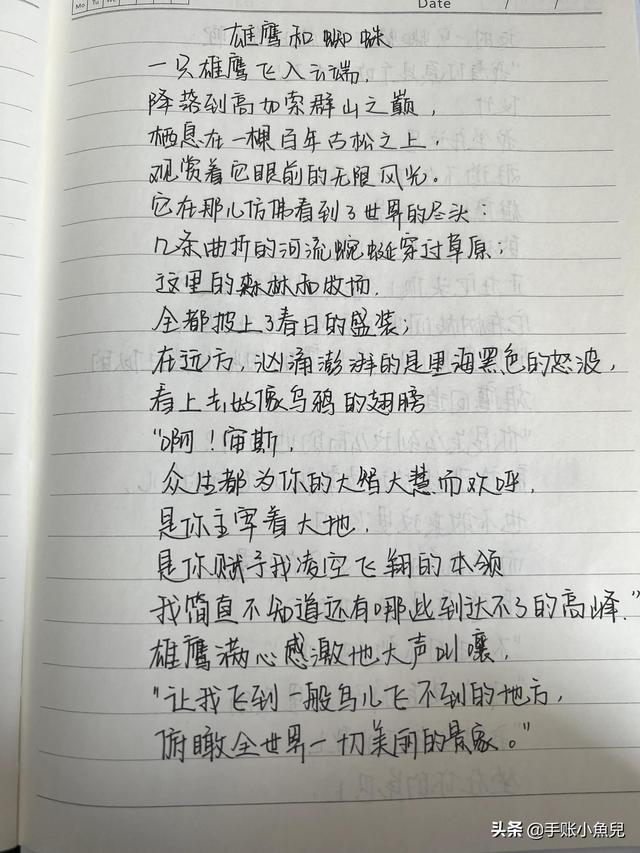 Mo Tu We
Date / /
雄鹰和蜘蛛
一只雄鹰飞入云端，
降落到高加索群山之巅，
栖息在一棵百年古松之上，
观赏着它眼前的无限风光。
它在那儿仿佛看到了世界的尽头：
几条曲折的河流蜿蜒穿过草原；
这里的森林和牧场，
全都披上了春日的盛装；
在远方，汹涌澎湃的是里海黑色的怒波，
看上去好像乌鸦的翅膀
“啊！宙斯，
众生都为你的大智大慧而欢呼，
是你主宰着大地，
是你赋予我凌空飞翔的本领
我简直不知道还有哪些到达不了的高峰。”
雄鹰满心感激地大声叫嚷，
“让我飞到一般鸟儿飞不到的地方，
俯瞰全世界一切美丽的景象。”
头条 @手账小魚兒